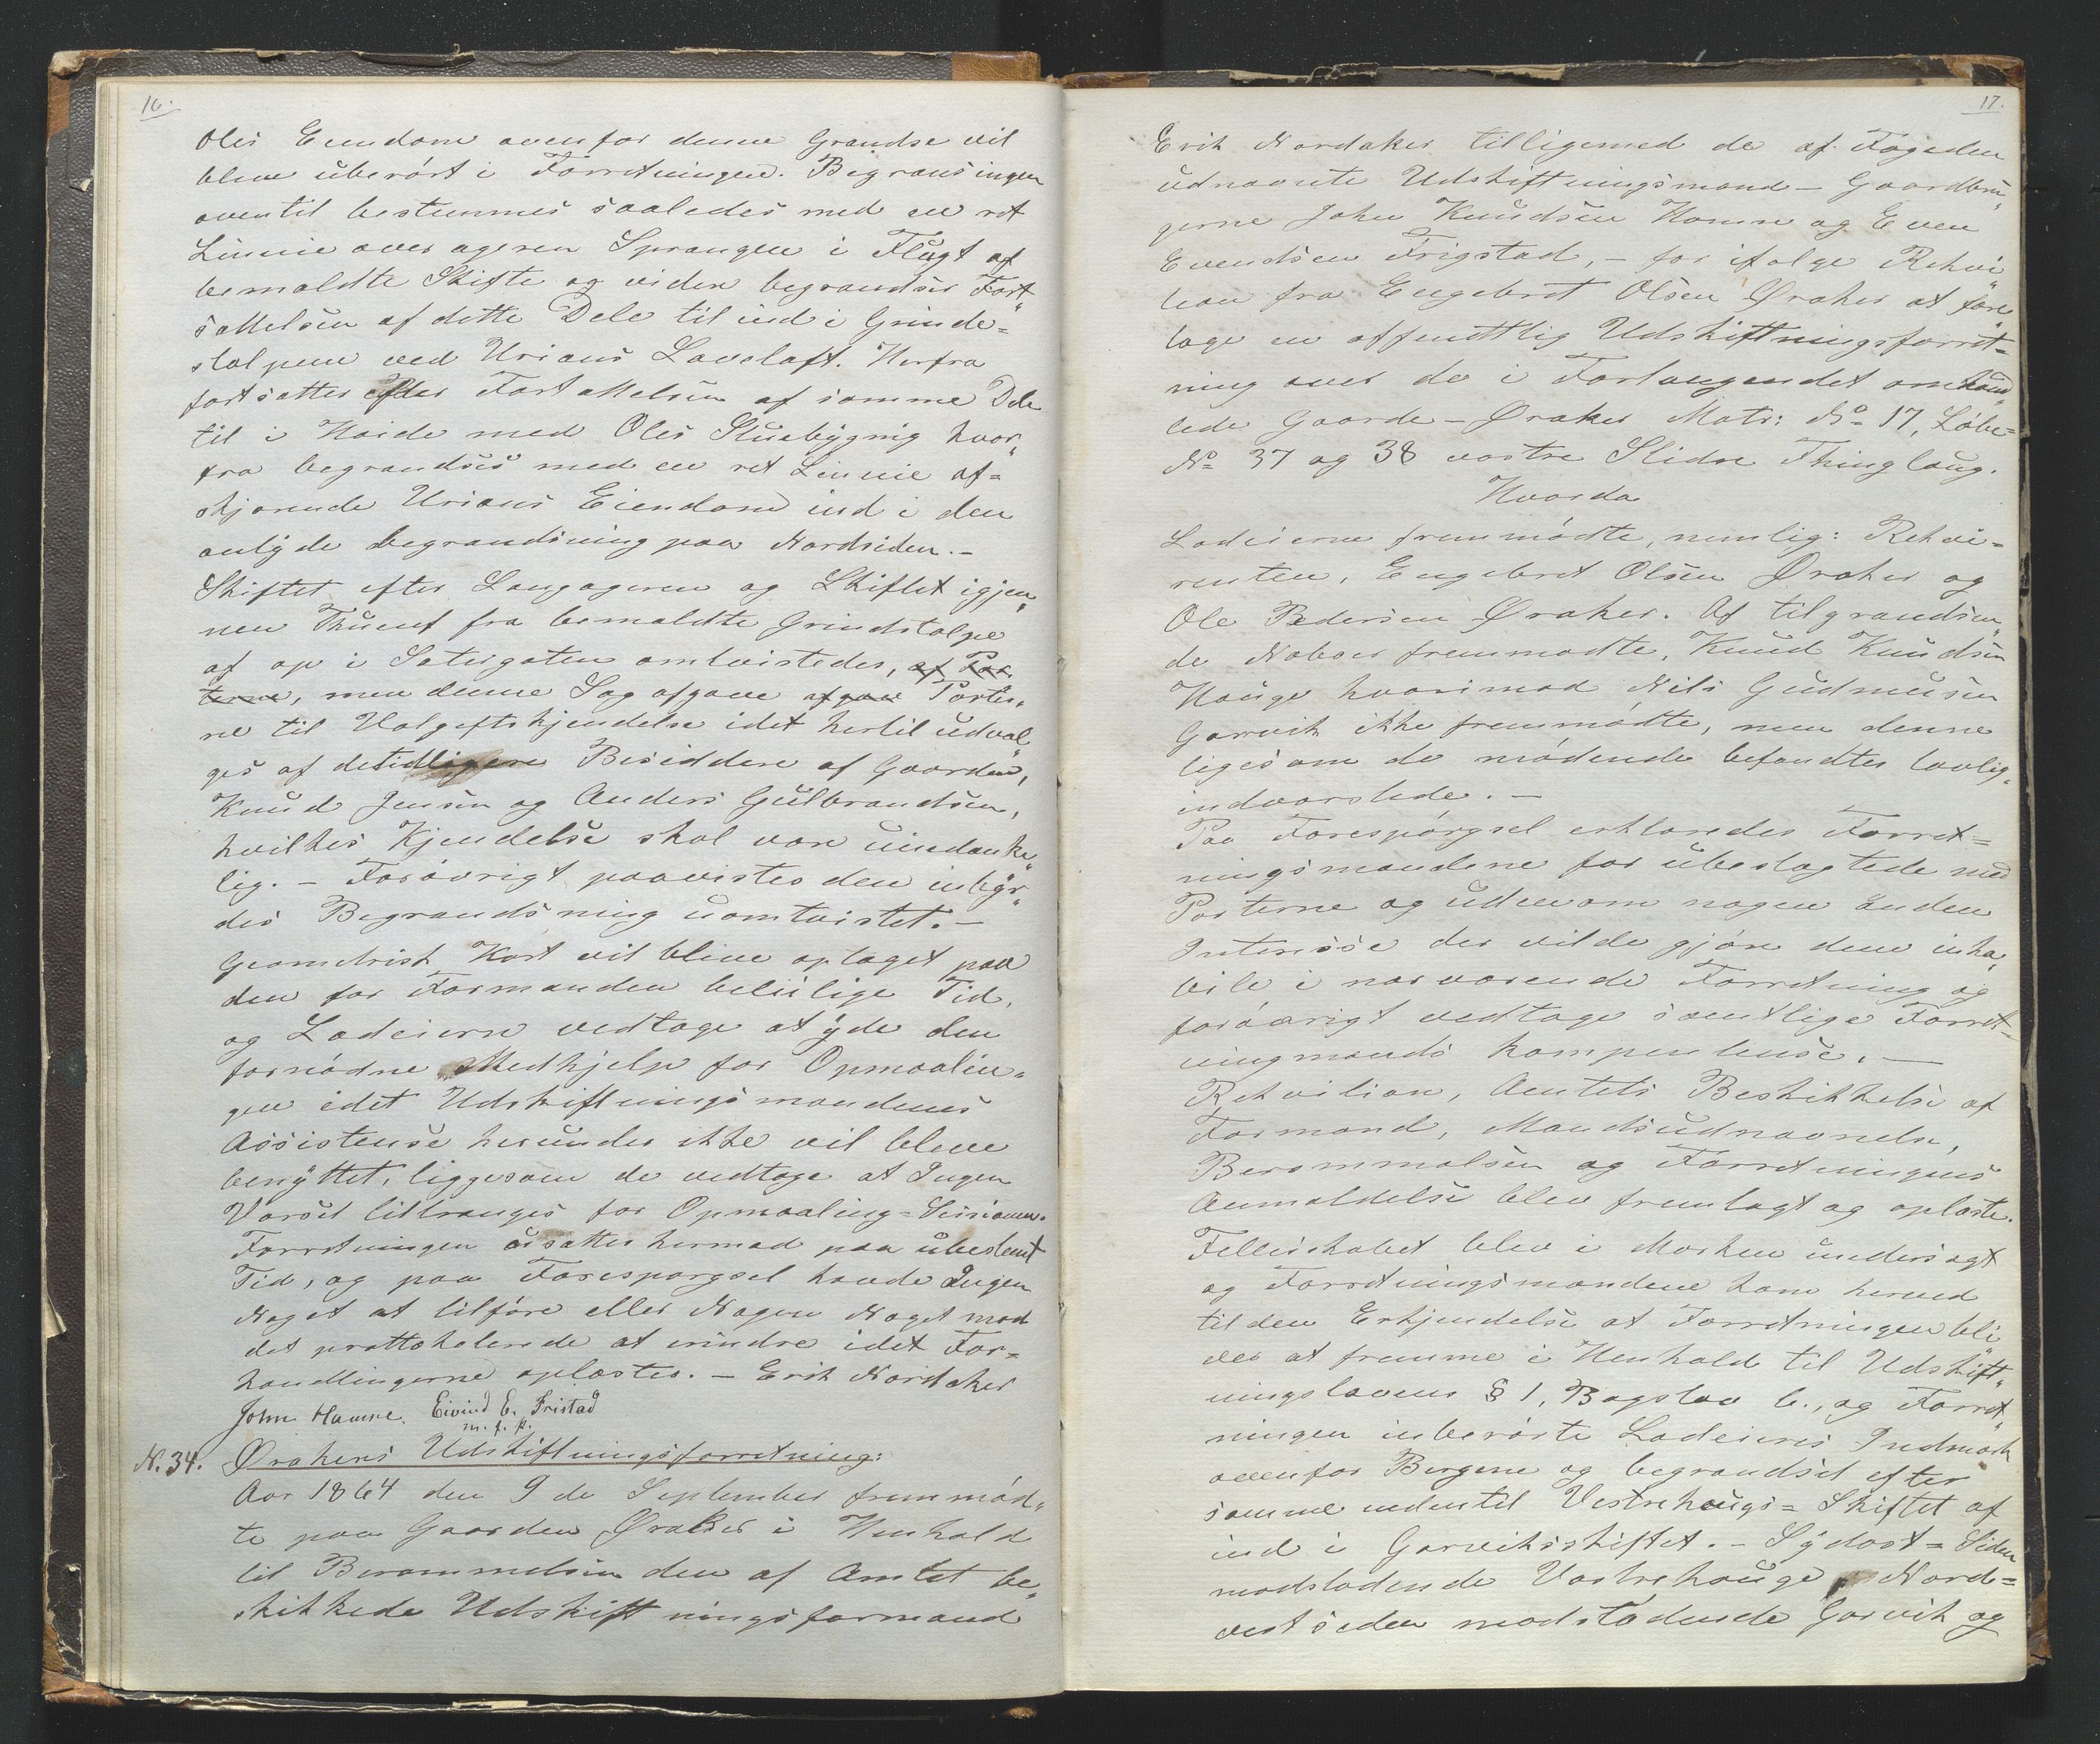 16.
Oles Eiendom ovenfor denne Grændse vil
blive uberørt i Forretningen. Begrænsingen
oventil bestemmes saaledes med en ret
Linnie over ageren Sprangen i Flugt af
bemældte Skifte og viden begrændses Fort„
sættelsen af dette Dele til ind i Grinde=
stolpene ved Urians Laveloft. Herfra
fortsættes efter Fortsættelsen af samme Dele
til i Høide med Oles Stuebygnig hvor„
fra begrændses med en ret Linnie af=
skjærende Urians Eiendom ind i den
anlyde begrændsning paa Nordsiden.-
Skiftet efter Langageren og Skiftet igjen„
nem Thunet fra bemældte Grindstolpe
af op i Sætergaten omtvistedes, af Par
terne, men denne Sag afgave afgave Parter„
ne til Volgiftskjendelse idet hertil udvæl„
ges af de tidligere Besiddere af Gaarden,
Knud Jensen og Anders Gulbrandsen,
hvilkes Kjendelse skal være uindanke„
lig. - Forøvrigt paavistes den inbyr„
des Begrændsning uomtvistet.-
Geometrisk Kart vil blive optaget paa
den for Formanden beleilige Tid,
og Lodeierne vedtage at yde den
fornødne Medhjelp for Opmaalin„
gen idet Udskiftningsmændenes
Assistense herunder ikke vil bleve
benyttet, liggesom de vedtage at Ingen
Varsel tiltrænges for Opmaaling=Sessionen.
Forretningen udsættes hermed paa ubestemt
Tid, og paa Forespørgsel havde Ingen
Noget at tilføre eller Nogen Noget mod
det prottokolerede at erindre idet For=
handlingerne oplæstes. - Erik Nordaker
John Hamre. Eivind E. Fristad
m. f. p.
N. 34. Ørakers Udskiftningsforretning:
Aar 1864 den 9de September fremmød„
te paa Gaarden Øraker i Henhold
til Berammelsen den af Amtet be„
skikkede Udskiftningsformand
17.
Erik Nordaker tilligemed de af Fogeden
udnævnte Udskiftningsmænd - Gaardbru„
gerne John Knudsen Hamre og Even
Evendsen Frigstad, - for ifølge Rekvi„
tion fra Engebret Olsen Øraker at fore„
tage en offenttlig Udskiftningsforret=
ning over de i Forlangendet omhand„
lede Gaarde - Øraker Matr: No 17, Løbe=
No 37 og 38 vestre Slidre Thinglaug.
Hvorda
Lodeierne fremmødte, nemlig: Rekvi=
renten, Engebret Olsen Øraker og
Ole Pedersen Øraker. Af tilgrændsen„
de Naboer fremmødte, Knud Knudsen
Hauge hvorimod Nils Gudmusen
Garvik ikke fremmødte, men denne
ligesom de mødende befandtes lovlig„
indvarslede. -
Paa Forespørgsel erklæredes Forret=
ningsmændene for ubeslægtede med
Parterne og uden om nogen anden
Interesse der vilde gjøre dem inha„
bile i nærværende Forretning og
forøvrigt vedtage samtlige Forret=
ningmænds kompentense. -
Rekvition, Amtets Beskikkelse af
Formand, Mandsudnævnelse,
Berammelsen og Forretningens
Anmældelse blev fremlagt og oplæste.
Fellesskabet blev i Marken undersøgt
og Forretningsmændene kom herved
til den Erkjendelse at Forretningen bli„
ver at fremme i Henhold til Udskift„
ningslovens § 1, Bogstav b., og Forret„
ningen inberørte Lodeieres Indmark
ovenfor Bergene og begrændset efter
samme nedentil Vestrehaugs=Skiftet af
ind i Garviksskiftet. - Sydost=Siden
modstødende Vestrehauge, Nord=
vestseden modstødende Garvik og